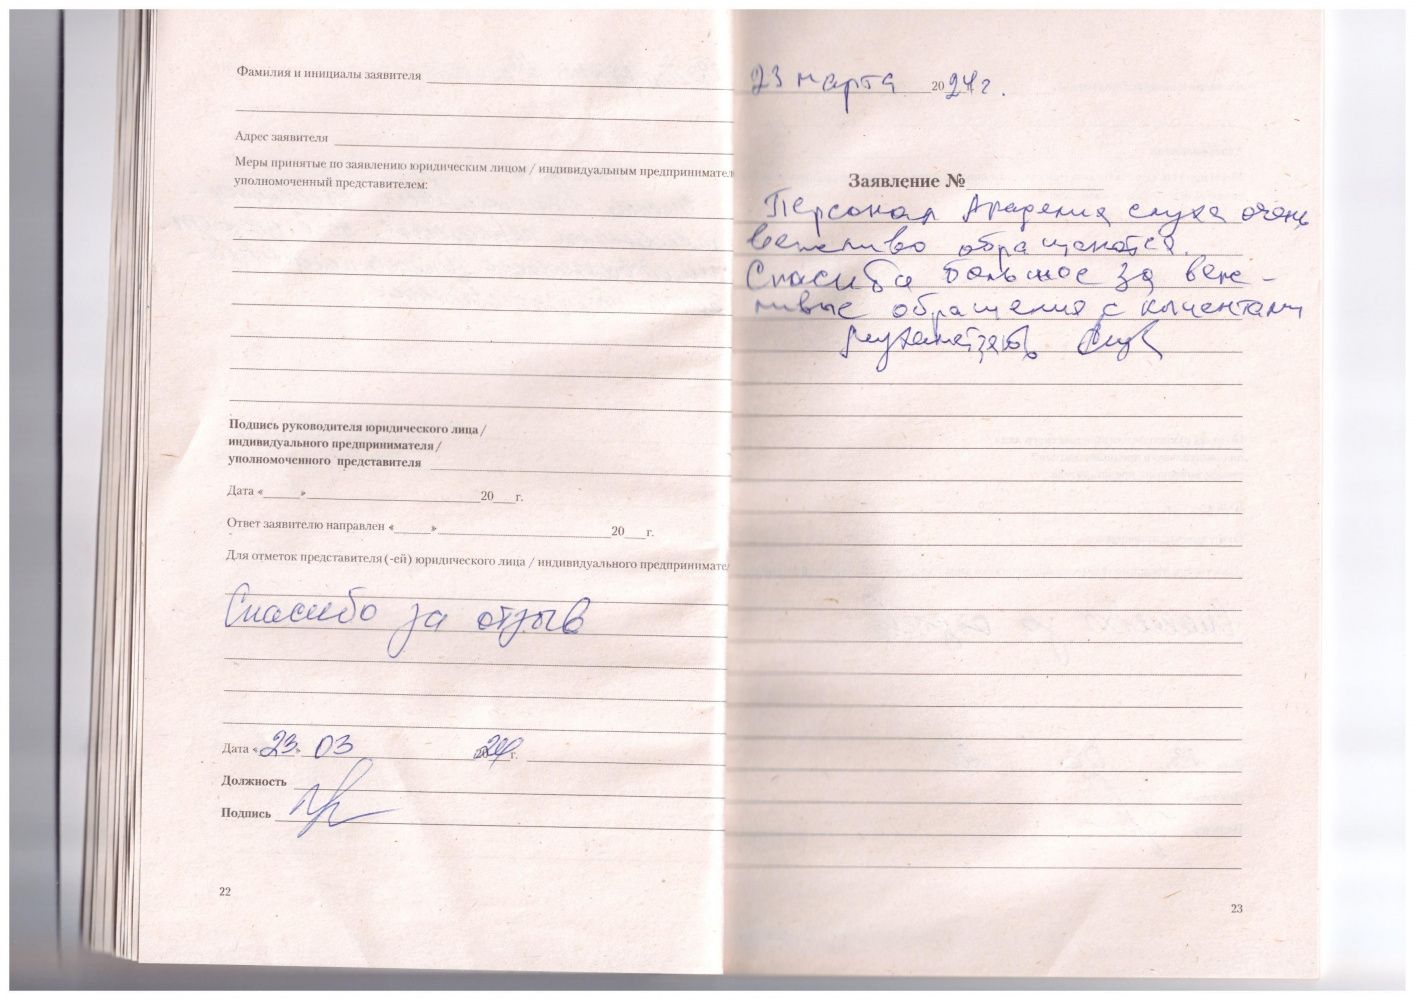 Фамилия и инициалы заявителя
Адрес заявителя
Меры принятые по заявлению юридическим лицом / индивидуальным предпринимател
уполномоченный представителем:
Подпись руководителя юридического лица /
индивидуального предпринимателя /
уполномоченного представителя
Дата «______»____________________20___г.
Ответ заявителю направлен «______»____________________20___г.
Для отметок представителя (-ей) юридического лица / индивидуального предпринимате
Спасибо за отзыв
Дата «23» 03 2024 г.
Должность
Подпись
22
23 марта 2024 г.
Заявление №
Персонал Академия слуха очень
вежливо обращаются.
Спасиба большое за веж-
ливые обращения с клиентами
23